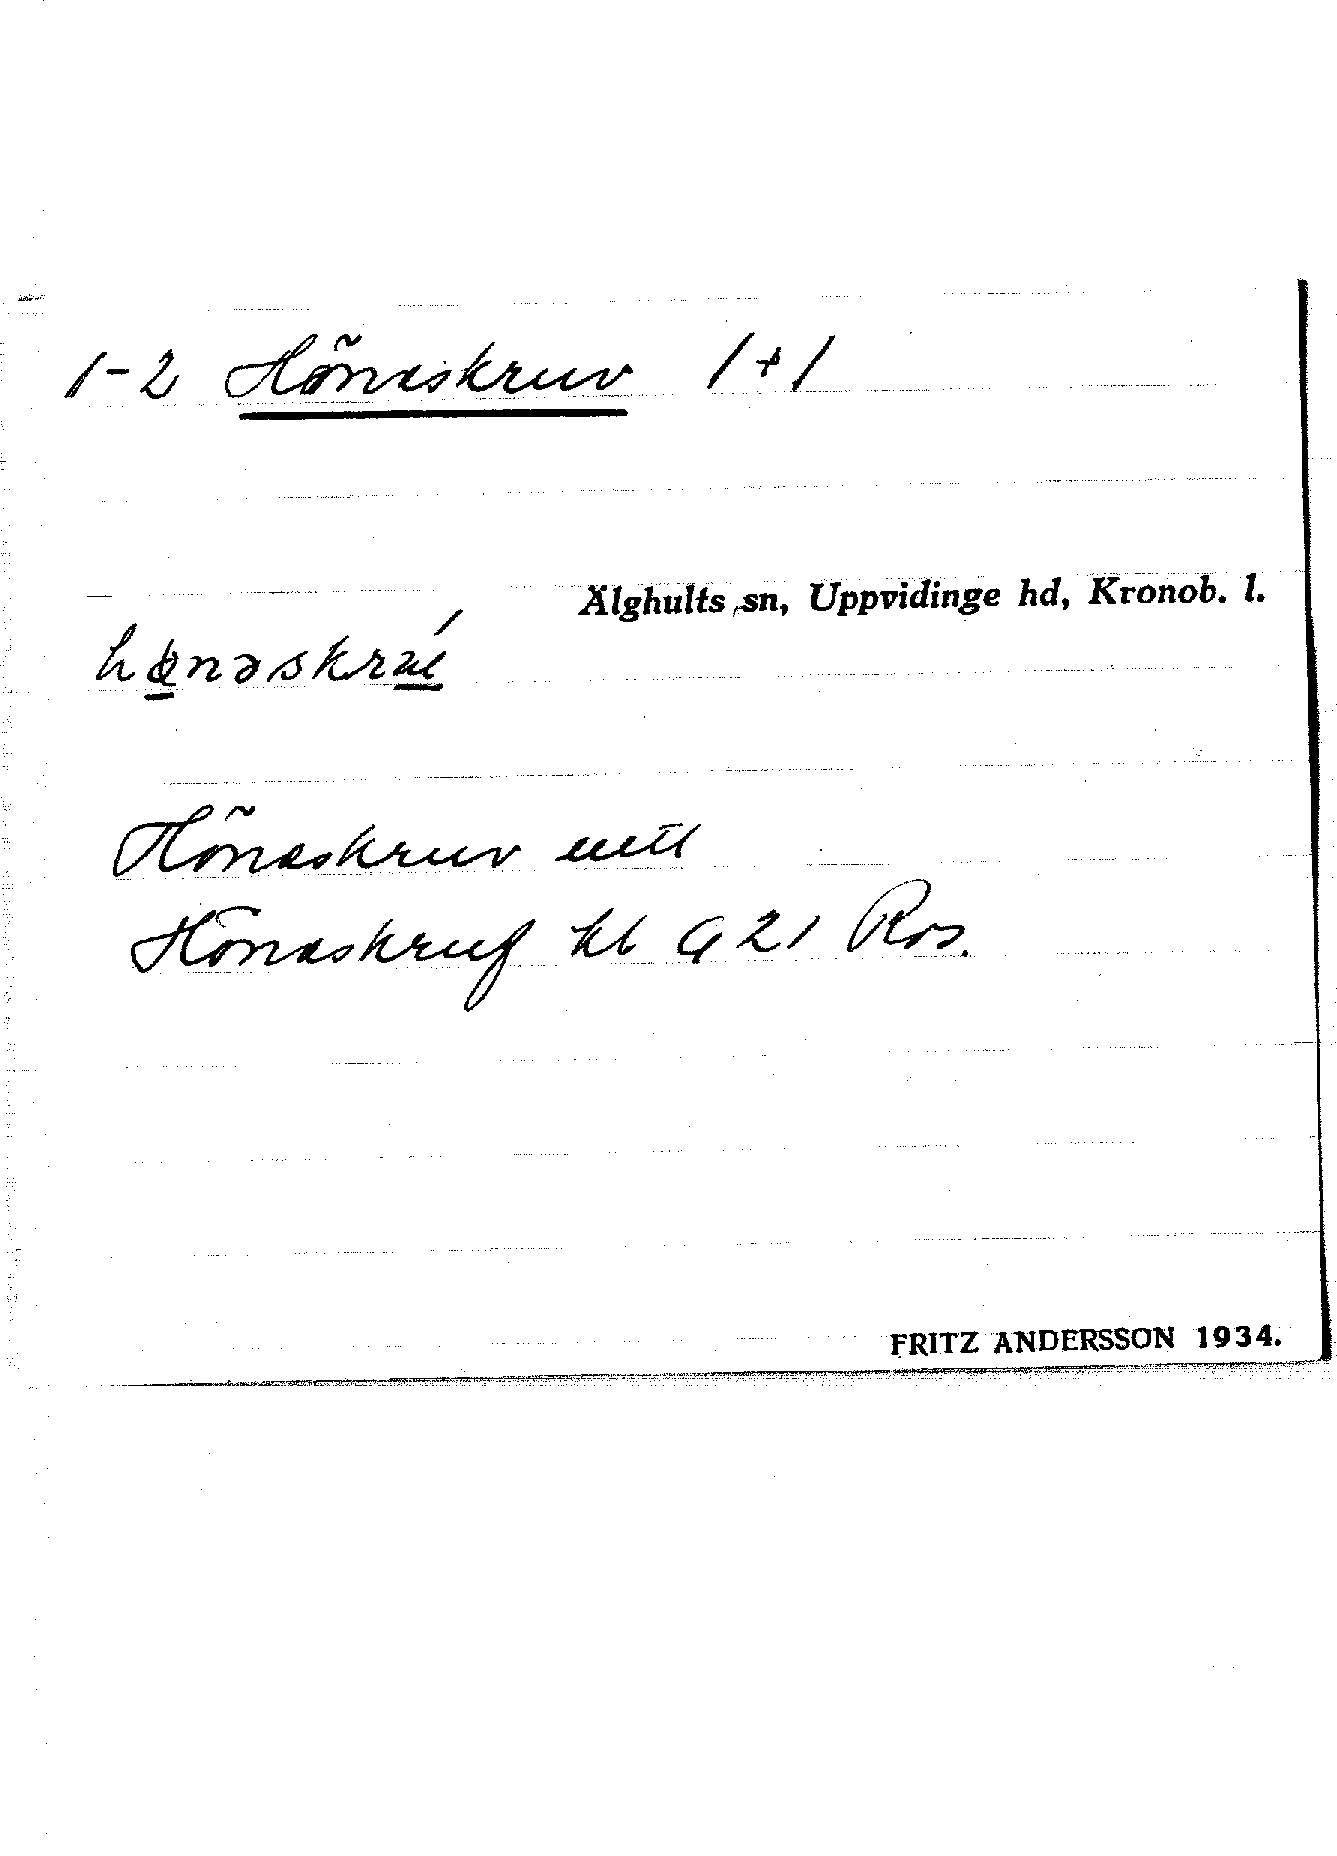 1-2 Hönaskruv 1+1
Älghults sn, Uppvidinge hd, Kronob. l.
Hönaskruv
Hönaskruf kb G 21 Ros.
FRITZ ANDERSSON 1934.